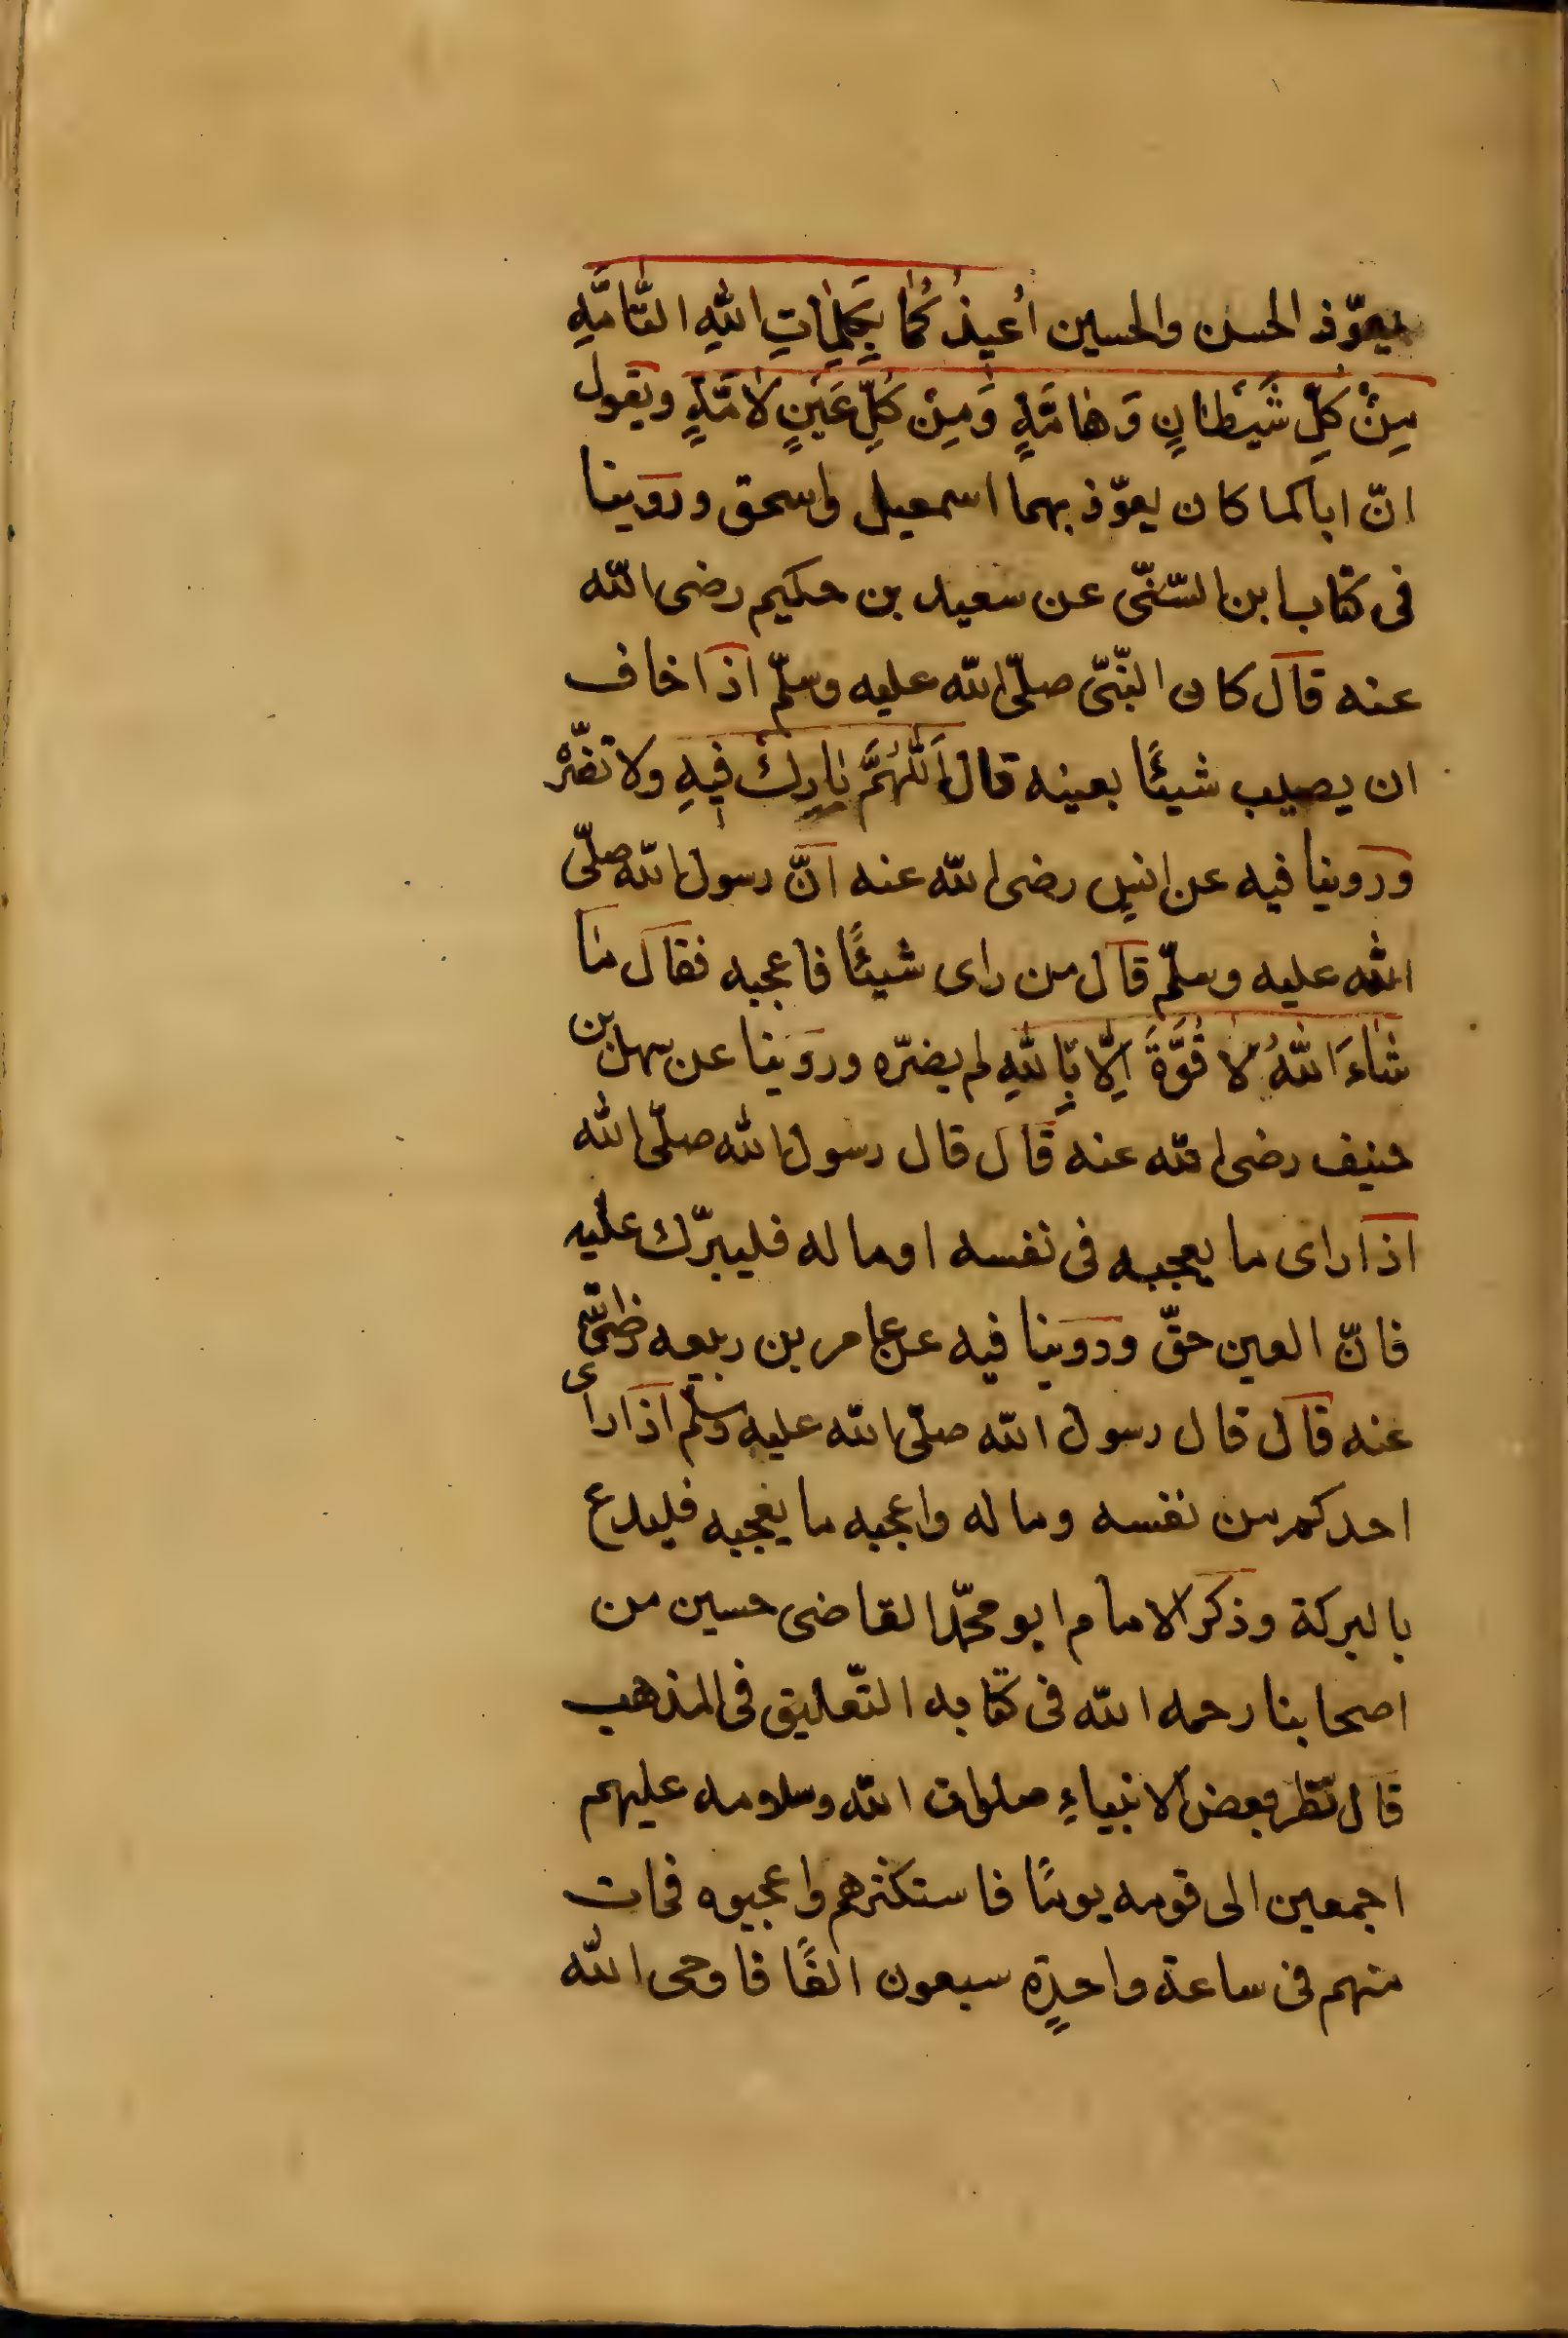 يعوّذ الحسن والحسين اُعيذُكُمٰا بِكَلِمٰاتِ اللّٰهِ التّٰامَّهِ
مِنْ كُلِّ شَيْطٰانٍ وَهٰامَّهٍ وَمِنْ كُلِّ عَيْنٍ لٰامَّهٍ ويقول
انّ اباكما كان يعوّذ بهما اسمعيل واسحق وروينا
فى كتاب ابن السّنّى عن سعيد بن حكيم رضى اللّه
عنه قال كان النّبّى صلّى اللّه عليه وسلّم اذا خاف
ان يصيب شيئًا بعينه قال اَللّٰهُمَّ بٰارِكْ فيهِ ولا تضّرْ
وروينا فيه عن انسٍ رضى اللّه عنه انّ رسول اللّه صلّى
اللّٰه عليه وسلّم قال من راى شيئًا فاعجبه فقال مٰا
شٰاءَ اللّٰهُ لٰا قُوَّةَ اِلّٰا بِاللّٰهِ لم يضرّه وروينا عن سهل بن
حنيف رضى اللّه عنه قال قال رسول اللّٰه صلّى اللّٰه
اذا راى ما يعجبه فى نفسه او ماله فليبرّك عليه
فانّ العين حقّ وروينا فيه عن عامر بن ربيعه رضى اللّٰه
عنه قال قال رسول اللّه صلّى اللّه عليه وسلم اذا راى
احدكم من نفسه وماله واعجبه ما يعجبه فليدع
بالبركة وذكر الامام ابو محمّد القاضى حسين من
اصحابنا رحمه اللّه فى كتابه التّعليق فى المذهب
قال نظر بعض الانبياءِ صلوات اللّه وسلامه عليهم
اجمعين الى قومه يومًا فاستكثرهم واعجبوه فمات
منهم فى ساعة واحدٍة سبعون الفًا فاوحى اللّٰه